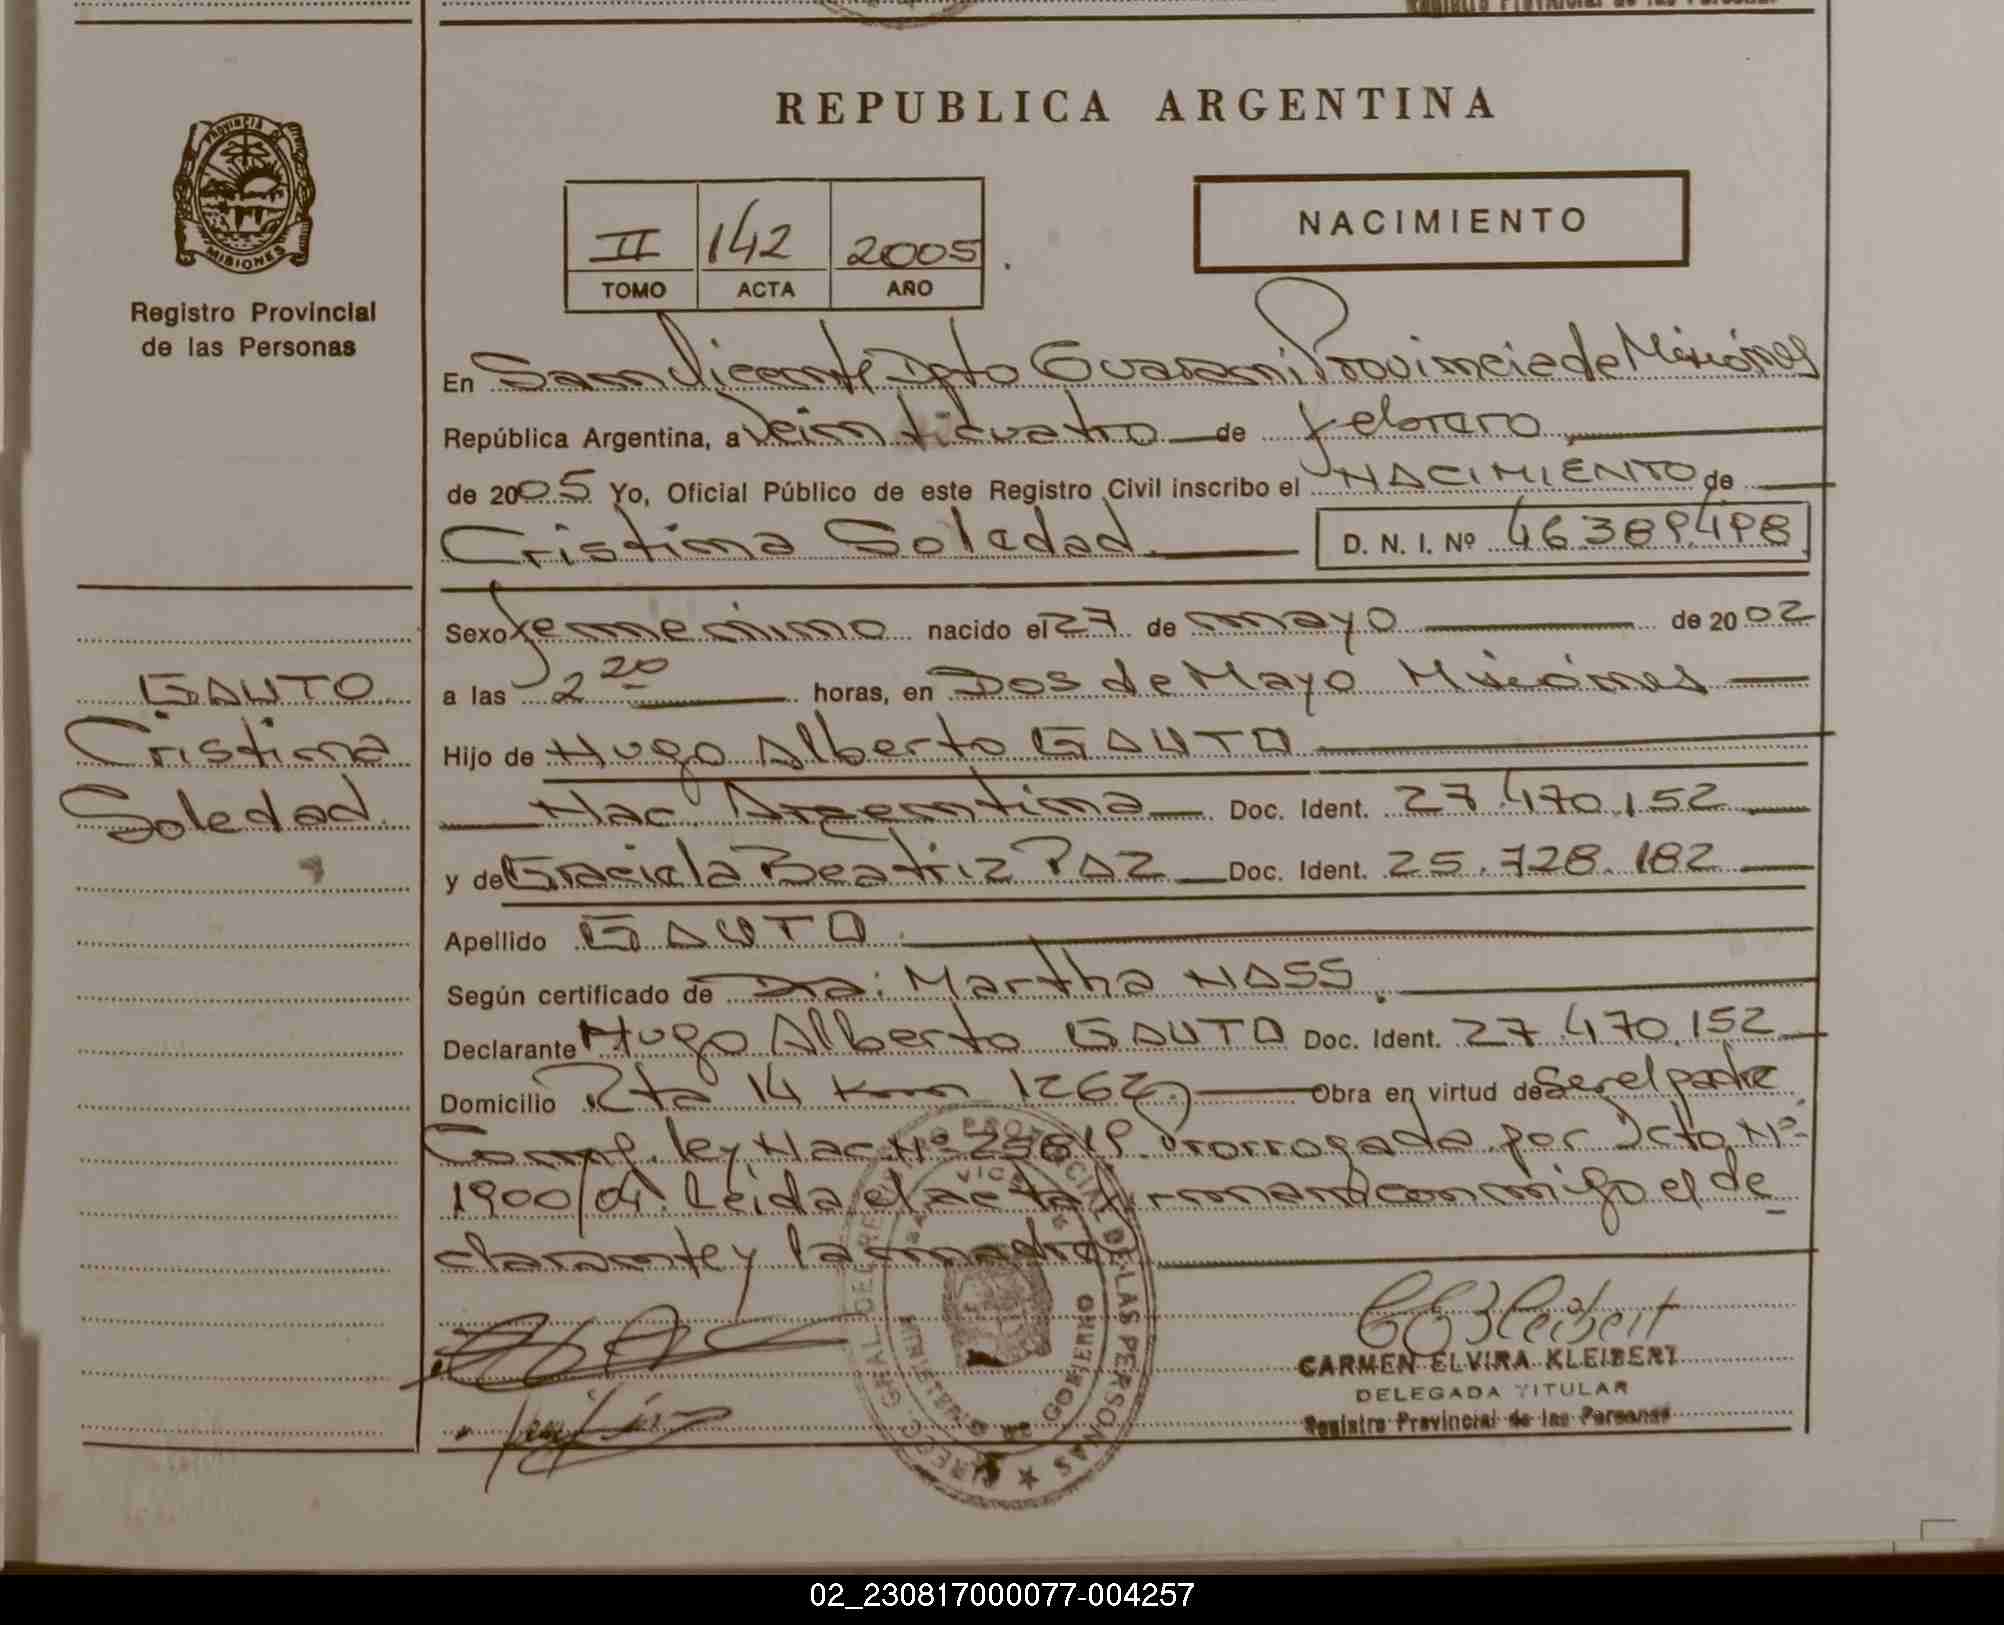 REPUBLICA ARGENTINA
PROVINCIA DE
MISIONES
Registro Provincial
de las Personas
II 142 2005
TOMO ACTA AÑO
NACIMIENTO
En San Vicente Dpto Guarani Provincia de Misiones
República Argentina, a Veinticuatro de febrero
de 2005 Yo, Oficial Público de este Registro Civil inscribo el NACIMIENTO de
Cristina Soledad D. N. I. Nº 46389498
Sexo femenino nacido el 27 de mayo de 2002
a las 2 20 horas, en Dos de Mayo Misiones
Hijo de Hugo Alberto GAUTO
Nac. Argentina Doc. Ident. 27.470.152
y de Graciela Beatriz PAZ Doc. Ident. 25.728.182
Apellido GAUTO
Según certificado de Dra: Martha NASS.
Declarante Hugo Alberto GAUTO Doc. Ident. 27.470.152
Domicilio Rta 14 Km 1262 Obra en virtud de Ser el padre
Conf. ley Nac. Nº 25819. Prorrogada por Dcto Nº
1900/04. Leida el acta firmand conmigo el de
clarante y la madre
GAUTO
Cristina
Soledad
CARMEN ELVIRA KLEIBERT
DELEGADA TITULAR
Registro Provincial de las Personas
02_230817000077-004257